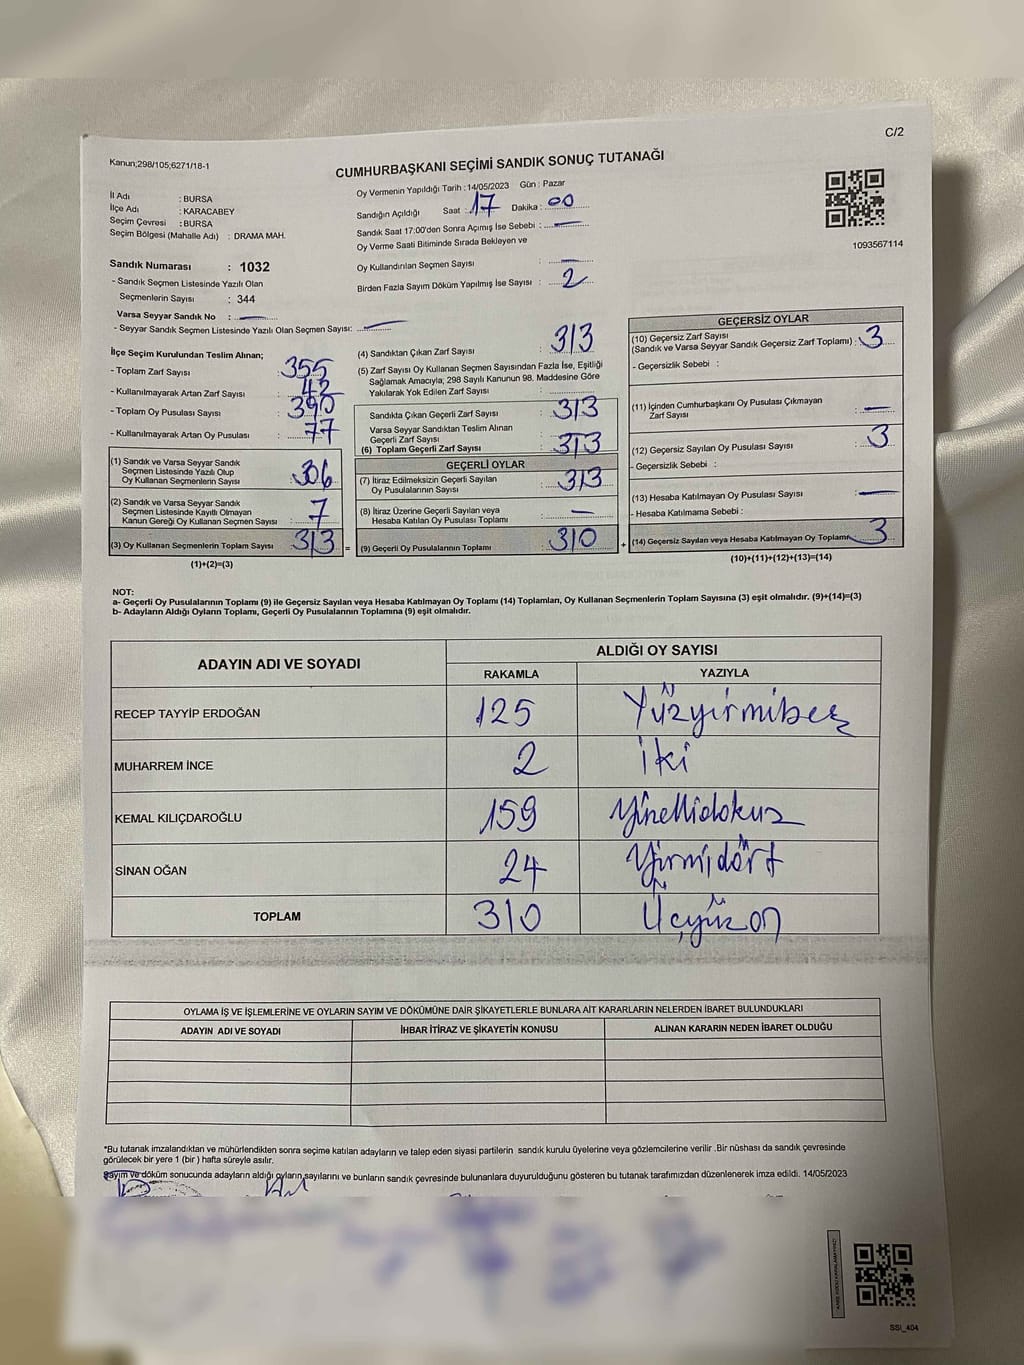 C/2
Kanun;298/105;6271/18-1
CUMHURBAŞKANI SEÇİMİ SANDIK SONUÇ TUTANAĞI
İl Adı : BURSA
İlçe Adı : KARACABEY
Seçim Çevresi : BURSA
Seçim Bölgesi (Mahalle Adı) : DRAMA MAH.
Oy Vermenin Yapıldığı Tarih :14/05/2023 Gün : Pazar
Sandığın Açıldığı Saat : 17 Dakika : 00
Sandık Saat 17:00'den Sonra Açımış İse Sebebi : —
Oy Verme Saati Bitiminde Sırada Bekleyen ve
Oy Kullandırılan Seçmen Sayısı : —
Birden Fazla Sayım Döküm Yapılmış İse Sayısı : 2
1093567114
Sandık Numarası : 1032
- Sandık Seçmen Listesinde Yazılı Olan
Seçmenlerin Sayısı : 344
Varsa Seyyar Sandık No : —
- Seyyar Sandık Seçmen Listesinde Yazılı Olan Seçmen Sayısı: —
İlçe Seçim Kurulundan Teslim Alınan;
- Toplam Zarf Sayısı : 355
- Kullanılmayarak Artan Zarf Sayısı : 42
- Toplam Oy Pusulası Sayısı : 390
- Kullanılmayarak Artan Oy Pusulası : 77
(1) Sandık ve Varsa Seyyar Sandık
Seçmen Listesinde Yazılı Olup
Oy Kullanan Seçmenlerin Sayısı : 306
(2) Sandık ve Varsa Seyyar Sandık
Seçmen Listesinde Kayıtlı Olmayan
Kanun Gereği Oy Kullanan Seçmen Sayısı : 7
(3) Oy Kullanan Seçmenlerin Toplam Sayısı : 313
(1)+(2)=(3)
(4) Sandıktan Çıkan Zarf Sayısı : 313
(5) Zarf Sayısı Oy Kullanan Seçmen Sayısından Fazla İse, Eşitliği
Sağlamak Amacıyla, 298 Sayılı Kanunun 98. Maddesine Göre
Yakılarak Yok Edilen Zarf Sayısı :
Sandıkta Çıkan Geçerli Zarf Sayısı : 313
Varsa Seyyar Sandıktan Teslim Alınan
Geçerli Zarf Sayısı :
(6) Toplam Geçerli Zarf Sayısı : 313
GEÇERLİ OYLAR
(7) İtiraz Edilmeksizin Geçerli Sayılan
Oy Pusulalarının Sayısı : 313
(8) İtiraz Üzerine Geçerli Sayılan veya
Hesaba Katılan Oy Pusulası Toplamı : —
(9) Geçerli Oy Pusulalarının Toplamı : 310
=
+
GEÇERSİZ OYLAR
(10) Geçersiz Zarf Sayısı
(Sandık ve Varsa Seyyar Sandık Geçersiz Zarf Toplamı) : 3
- Geçersizlik Sebebi :
(11) İçinden Cumhurbaşkanı Oy Pusulası Çıkmayan
Zarf Sayısı : —
(12) Geçersiz Sayılan Oy Pusulası Sayısı : 3
- Geçersizlik Sebebi :
(13) Hesaba Katılmayan Oy Pusulası Sayısı : —
- Hesaba Katılmama Sebebi :
(14) Geçersiz Sayılan veya Hesaba Katılmayan Oy Toplamı : 3
(10)+(11)+(12)+(13)=(14)
NOT:
a- Geçerli Oy Pusulalarının Toplamı (9) ile Geçersiz Sayılan veya Hesaba Katılmayan Oy Toplamı (14) Toplamları, Oy Kullanan Seçmenlerin Toplam Sayısına (3) eşit olmalıdır. (9)+(14)=(3)
b- Adayların Aldığı Oyların Toplamı, Geçerli Oy Pusulalarının Toplamına (9) eşit olmalıdır.
ADAYIN ADI VE SOYADI ALDIĞI OY SAYISI
RAKAMLA YAZIYLA
RECEP TAYYİP ERDOĞAN 125 Yüzyirmibeş
MUHARREM İNCE 2 İki
KEMAL KILIÇDAROĞLU 159 Yüzellidokuz
SİNAN OĞAN 24 Yirmidört
TOPLAM 310 Üçyüzon
OYLAMA İŞ VE İŞLEMLERİNE VE OYLARIN SAYIM VE DÖKÜMÜNE DAİR ŞİKAYETLERLE BUNLARA AİT KARARLARIN NELERDEN İBARET BULUNDUKLARI
ADAYIN ADI VE SOYADI İHBAR İTİRAZ VE ŞİKAYETİN KONUSU ALINAN KARARIN NEDEN İBARET OLDUĞU
*Bu tutanak imzalandıktan ve mühürlendikten sonra seçime katılan adayların ve talep eden siyasi partilerin sandık kurulu üyelerine veya gözlemcilerine verilir .Bir nüshası da sandık çevresinde
görülecek bir yere 1 (bir ) hafta süreyle asılır.
Sayım ve döküm sonucunda adayların aldığı oyların sayılarını ve bunların sandık çevresinde bulunanlara duyurulduğunu gösteren bu tutanak tarafımızdan düzenlenerek imza edildi. 14/05/2023
SSI_404